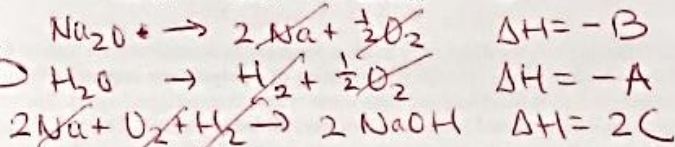 Na₂O → 2 Na + ½O₂ ΔH = -B
H₂O → H₂ + ½O₂ ΔH = -A
2Na + O₂ + H₂ → 2 NaOH ΔH = 2C